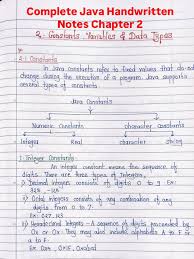 Complete Java Handwritten
Notes Chapter 2
2:- Constants Variables & Data Types
Constants
In Java constants refer to fixed values that do not
change during the execution of a program. Java supports
several types of constants.
Java Constants
Numeric Constants character constants
Integer Real character string
1. Integer Constants
An integer constant means the sequence of
digits. There are three types of Integers,
i) Decimal integers consists of digits 0 to 9
ii) Octal integers consists of any combination of any
digits from 0 to 7
iii) Hexadecimal integers - A sequence of digits preceded by
0x or 0X. They may also include alphabets A to F or
a to f.